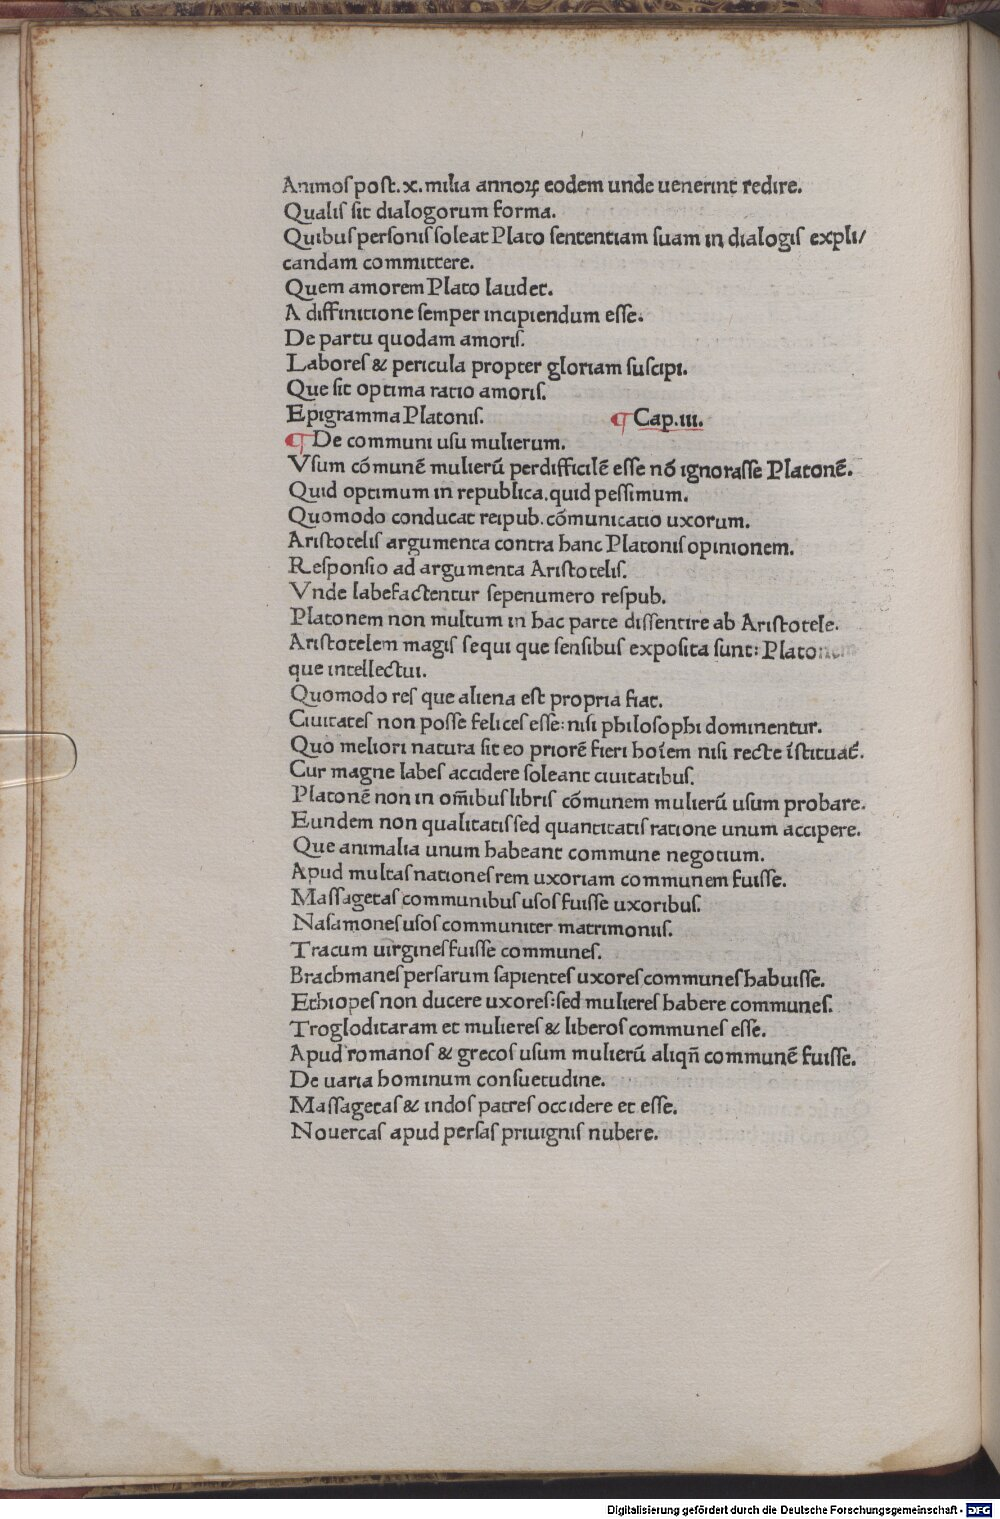 Animoſ poſt. x. milia annoꝝ eodem unde uenerint redire.
Qualiſ ſit dialogorum forma.
Quibuſ perſoniſ ſoleat Plato ſententiam ſuam in dialogiſ expli/
candam committere.
Quem amorem Plato laudet.
A diffinitione ſemper incipiendum eſſe.
De partu quodam amoriſ.
Laboreſ & pericula propter gloriam ſuſcipi.
Que ſit optima ratio amoriſ.
Epigramma Platoniſ. ¶ Cap. iii.
¶ De communi uſu mulierum.
Vſum cōmunē mulierū perdifficilē eſſe nō ignoraſſe Platonē.
Quid optimum in republica. quid peſſimum.
Quomodo conducat reipub. cōmunicatio uxorum.
Ariſtoteliſ argumenta contra hanc Platoniſ opinionem.
Reſponſio ad argumenta Ariſtoteliſ.
Vnde labefactentur ſepenumero reſpub.
Platonem non multum in hac parte diſſentire ab Ariſtotele.
Ariſtotelem magiſ ſequi que ſenſibuſ expoſita ſunt: Platonem
que intellectui.
Quomodo reſ que aliena eſt propria fiat.
Ciuitateſ non poſſe feliceſ eſſe: niſi philoſophi dominentur.
Quo meliori natura ſit eo priorē fieri hoīem niſi recte īſtituat̃.
Cur magne labeſ accidere ſoleant ciuitatibuſ.
Platonē non in om̄ibuſ libriſ cōmunem mulierū uſum probare.
Eundem non qualitatiſ ſed quantitatiſ ratione unum accipere.
Que animalia unum habeant commune negotium.
Apud multaſ nationeſ rem uxoriam communem fuiſſe.
Maſſagetaſ communibuſ uſoſ fuiſſe uxoribuſ.
Naſamoneſ uſoſ communiter matrimoniiſ.
Tracum uirgineſ fuiſſe communeſ.
Brachmaneſ perſarum ſapienteſ uxoreſ communeſ habuiſſe.
Ethiopeſ non ducere uxoreſ: ſed muliereſ habere communeſ.
Trogloditaram et muliereſ & liberoſ communeſ eſſe.
Apud romanoſ & grecoſ uſum mulierū aliqn̄ communē fuiſſe.
De uaria hominum conſuetudine.
Maſſagetaſ & indoſ patreſ occidere et eſſe.
Nouercaſ apud perſaſ priuigniſ nubere.
Digitalisierung gefördert durch die Deutsche Forschungsgemeinschaft - DFG